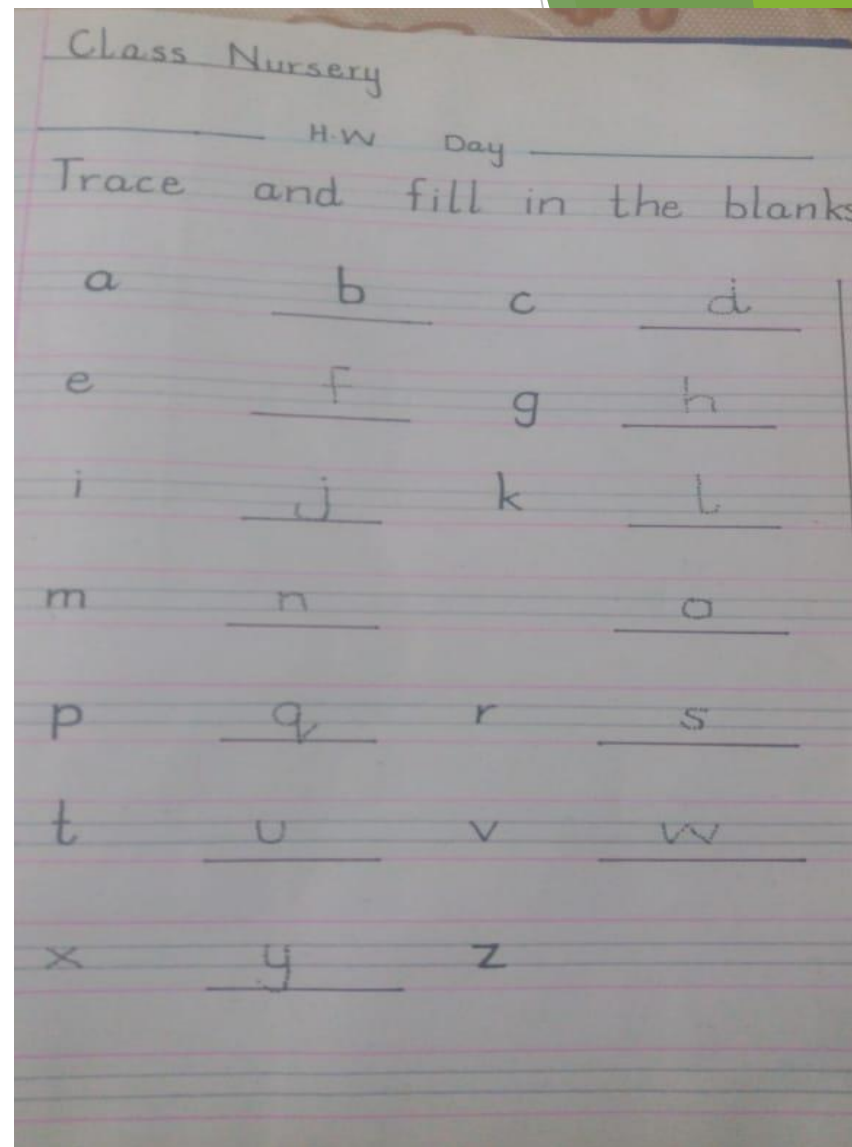 Class Nursery
____ H.W Day ____
Trace and fill in the blanks
a b c d
e f g h
i j k l
m n o
p q r s
t u v w
x y z